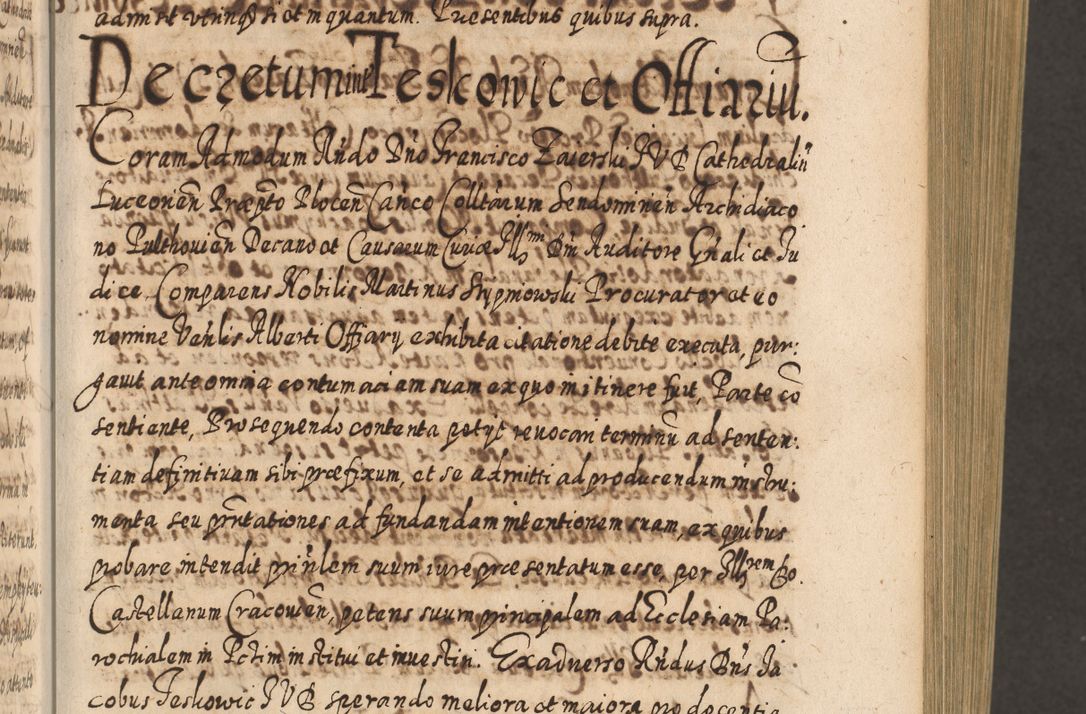 admisit utrinqs si et in quantum. Præsentibus quibus supra.
Decretum inter Teskowic et Offiariū.
Coram Admodum Rńdo Dńo Francisco Zaierski IVD Cathedraliū
Luceorien̄ Præp̄to Plocen̄ Can̄co Colltarum Sendomirien̄ Archidiaco
no Pulthovien̄ Decano et Causarum Curiæ Illmi Dńi Auditore Gńali et Ju
dice. Comparens Nobilis Martinus Stypniowski Procurator et eo
nomine Veńlis Alberti Offiary exhibita citatione debite executa, pur:
gavit ante omnia contumaciam suam ex quo in itinere fuit, Parte cō
sentiente, Prosequendo contenta petyt revocari terminū ad senten:
tiam definitivam sibi præfixum, et se admitti ad producendum instru:
menta seu pr̄ntationes ad fundandam intentionem suam, ex quibus
probare intendit prin̄lem suum iure præsentatum esse, per Illrem Do.
Castellanum Cracovien̄, petens suum principalem ad Ecclesiam Pa:
rochialem in Pctim institui et investiri. Ex adverso Rńdus Dńs Ja
cobus Teskowic IVD sperando meliora et maiora pro docentia